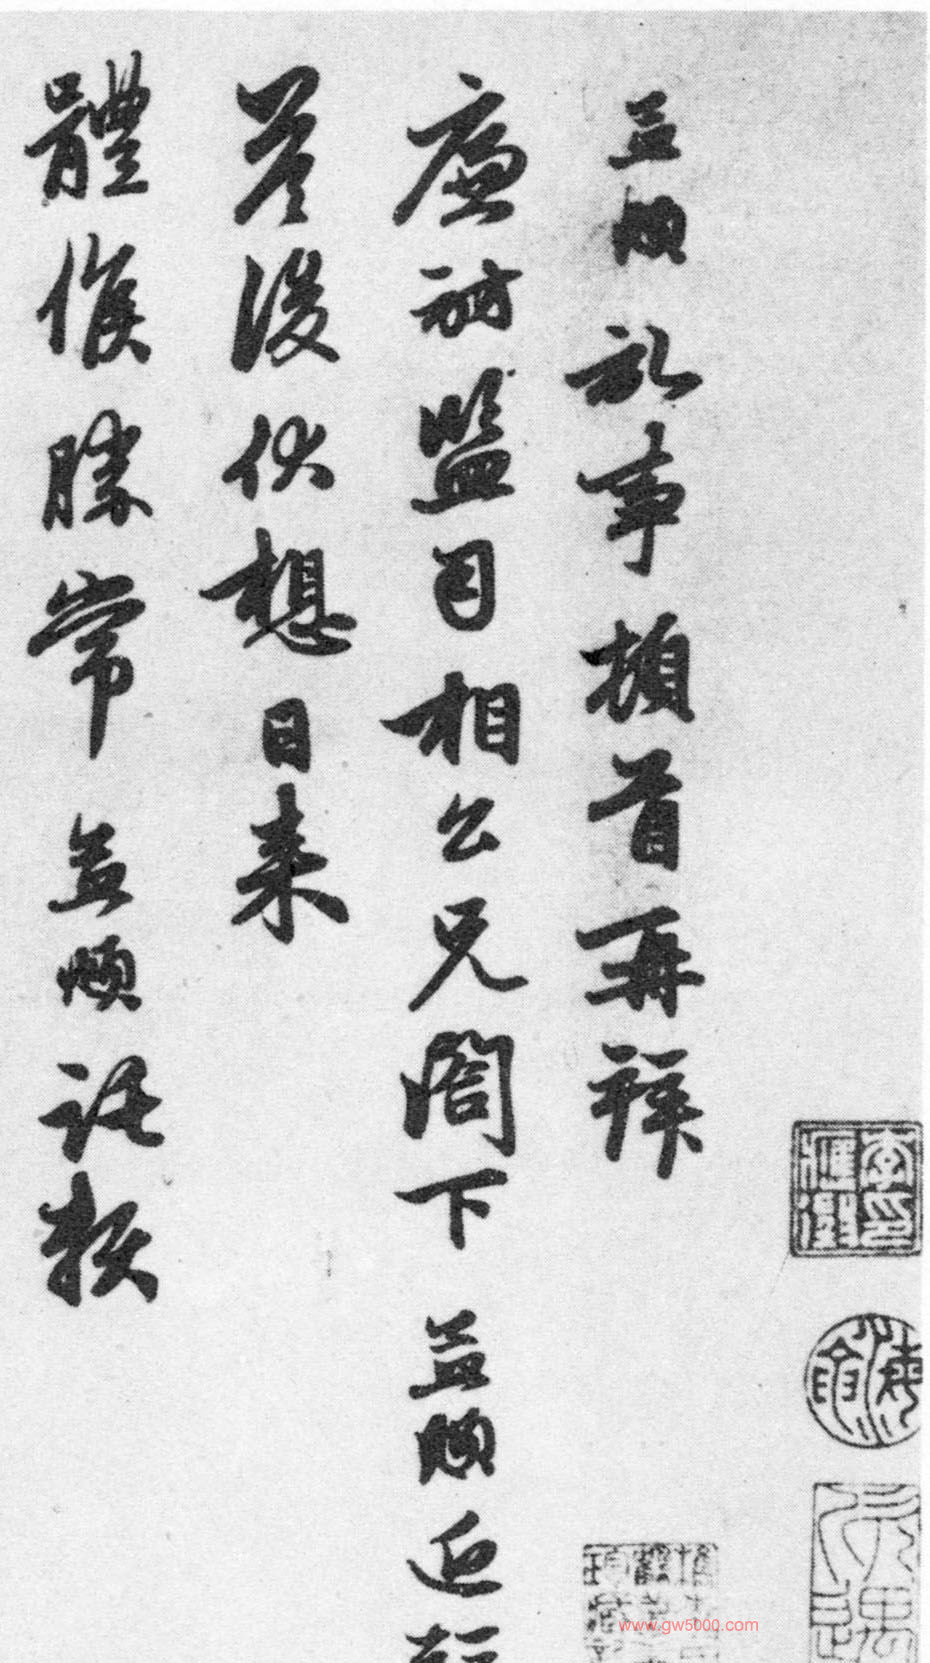 孟頫 記事頓首再拜
廉訪監司相公兄閤下 孟頫近
後伏想日來
體候勝常 孟頫託
www.gw5000.com